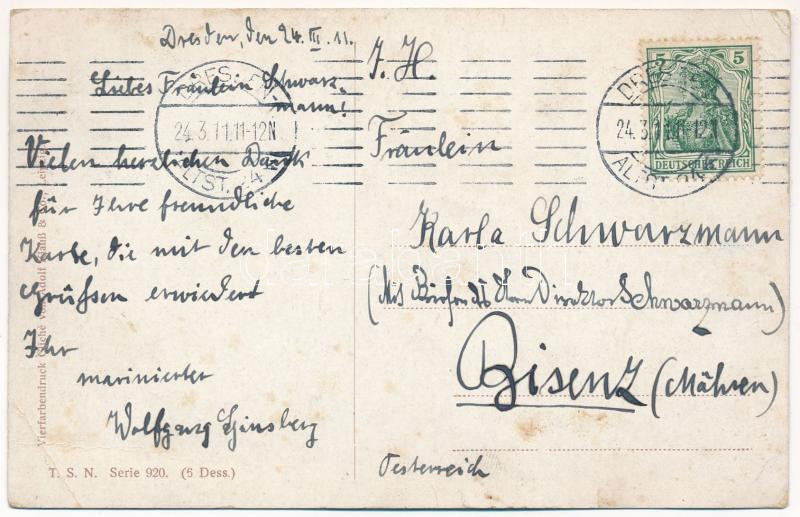 Dresden, den 24. III. 11.
Liebes Fräulein Schwarz-
mann!
Vielen herzlichen Dank
für Ihre freundliche
Karte, die mit den besten
Grüssen erwiedert
Ihr
marinierter
Wolfgang Ginsberg
I. H.
Fräulein
Karla Schwarzmann
Direktor Schwarzmann)
Bisenz (Mähren)
Oesterreich
24.3.11.11-12N
ALTST. 24
24.3.11.11-12N
ALTST. 24
5 5
DEUTSCHES REICH
Vierfarbendruck
T. S. N. Serie 920. (5 Dess.)
darabanth